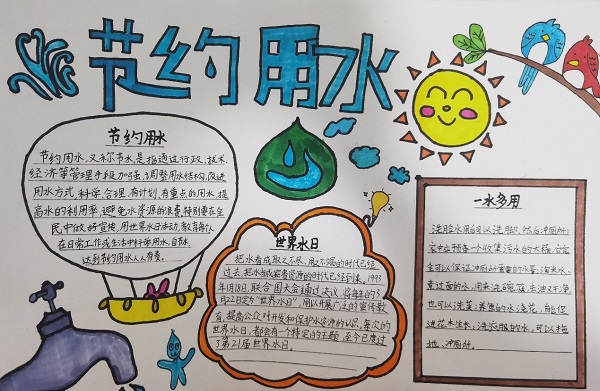 节约用水
节约用水
节约用水,又称节水,是指通过行政、技术、
经济等管理手段加强、调整用水结构,改进
用水方式,科学、合理、有计划、有重点的用水,提
高水的利用率,避免水资源的浪费,特别要在全
民中做好宣传,用世界水日活动,教育每个人
在日常工作或生活中科学用水,自觉
达到节约用水人人有责。
世界水日
把水看成取之不尽,用之不竭的时代已经
过去,把水当成宝贵资源的时代已经到来。1993
年1月18日,联合国大会通过决议,将每年的3
月22日定为“世界水日”,用以开展广泛的宣传教
育,提高公众对开发和保护水资源的认识,每次的
世界水日,都会有一个特定的主题,至今已度过
了第21届世界水日。
一水多用
洗脸水用后可以洗脚,然后冲厕所;
家中应预备一个收集污水的大桶,它完
全可以保证冲厕所需要的水量;淘米水、
煮过面的水,用来洗碗筷,去油又干净,
也可以洗菜;养鱼的水浇花,能促
进花木生长;洗衣服的水,可以拖
地、冲厕所。